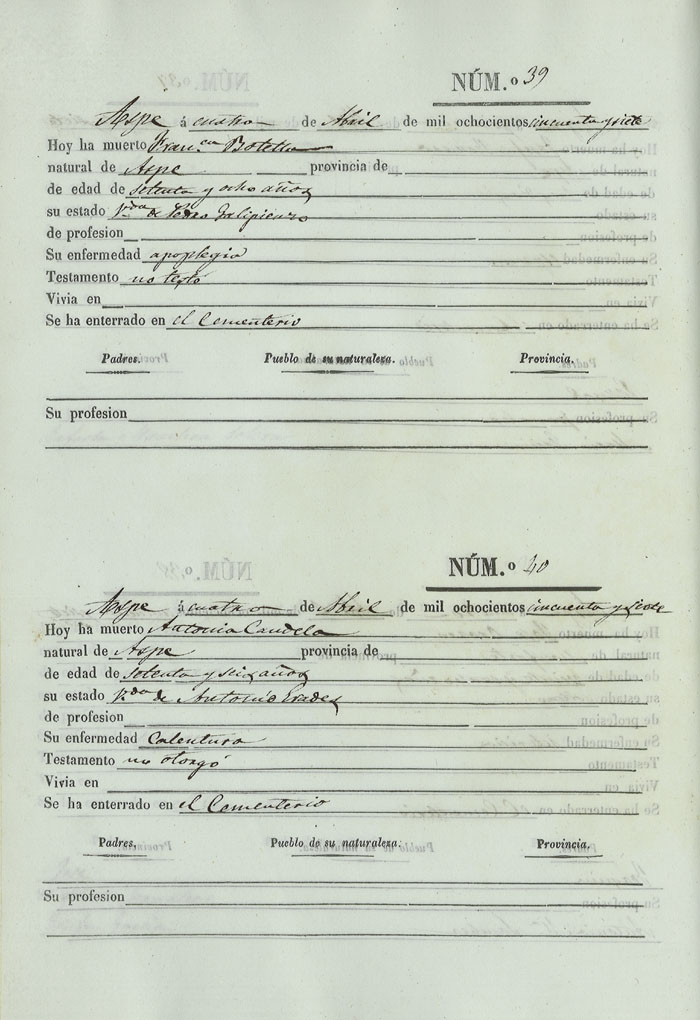 NÚM.º 39
Aspe á cuatro de Abril de mil ochocientos cincuenta y siete
Hoy ha muerto Fran.ca Botella
natural de Aspe provincia de
de edad de setenta y ocho años
su estado V.da de Pedro Galipienzo
de profesion
Su enfermedad apoplegia
Testamento no testó
Vivia en
Se ha enterrado en el Cementerio
Padres. Pueblo de su naturaleza. Provincia.
Su profesion
NÚM.º 40
Aspe á cuatro de Abril de mil ochocientos cincuenta y siete
Hoy ha muerto Antonia Candela
natural de Aspe provincia de
de edad de setenta y seis años
su estado V.da de Antonio Erades
de profesion
Su enfermedad Calentura
Testamento no otorgó
Vivia en
Se ha enterrado en el Cementerio
Padres. Pueblo de su naturaleza. Provincia.
Su profesion